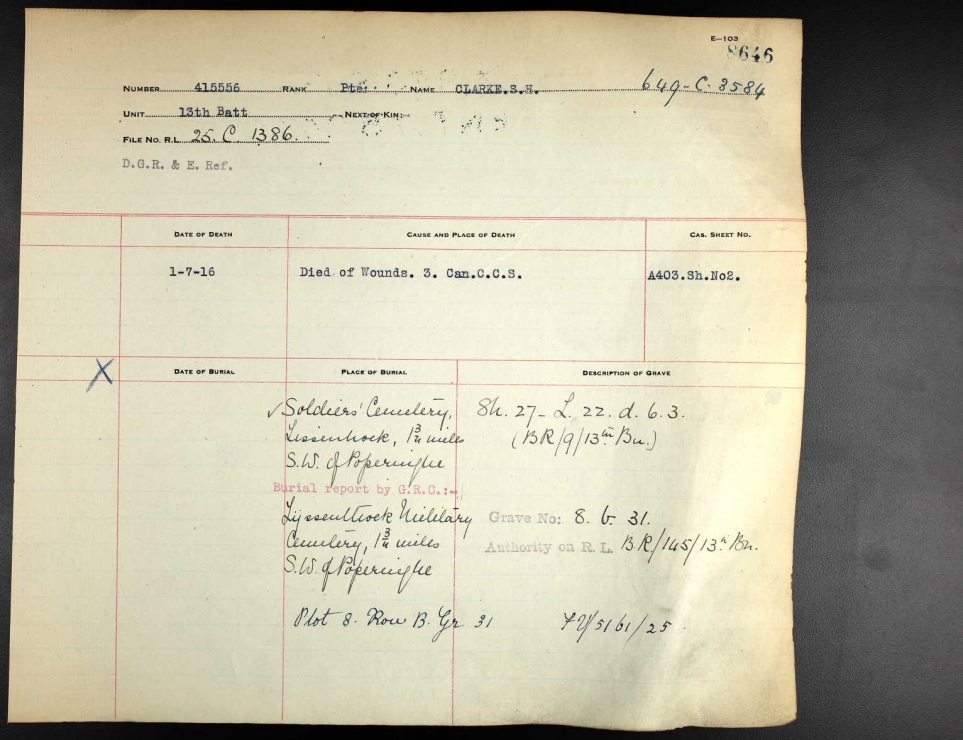 E—103
8646
NUMBER 415556 RANK Pte. NAME CLARKE.S.H. 649-C-3584
UNIT 13th Batt NEXT-OF-KIN:-
FILE No. R.L. 25. C. 1386.
D.G.R. & E. Ref.
DATE OF DEATH CAUSE AND PLACE OF DEATH CAS. SHEET NO.
1-7-16 Died of Wounds. 3. Can.C.C.S. A403.Sh.No2.
X DATE OF BURIAL PLACE OF BURIAL DESCRIPTION OF GRAVE
✓Soldiers' Cemetery, Sh. 27- L. 22. d. 6. 3.
Lissenhoek, 1¾ miles (BR/9/13th Bn.)
S.W. of Poperinghe
Burial report by G.R.C.:-
Lyssenthoek Military Grave No: 8. b. 31.
Cemetery, 1¾ miles Authority on R. L. BR/145/13th Bn.
S.W. of Poperinghe
Plot 8. Row B. Gr 31